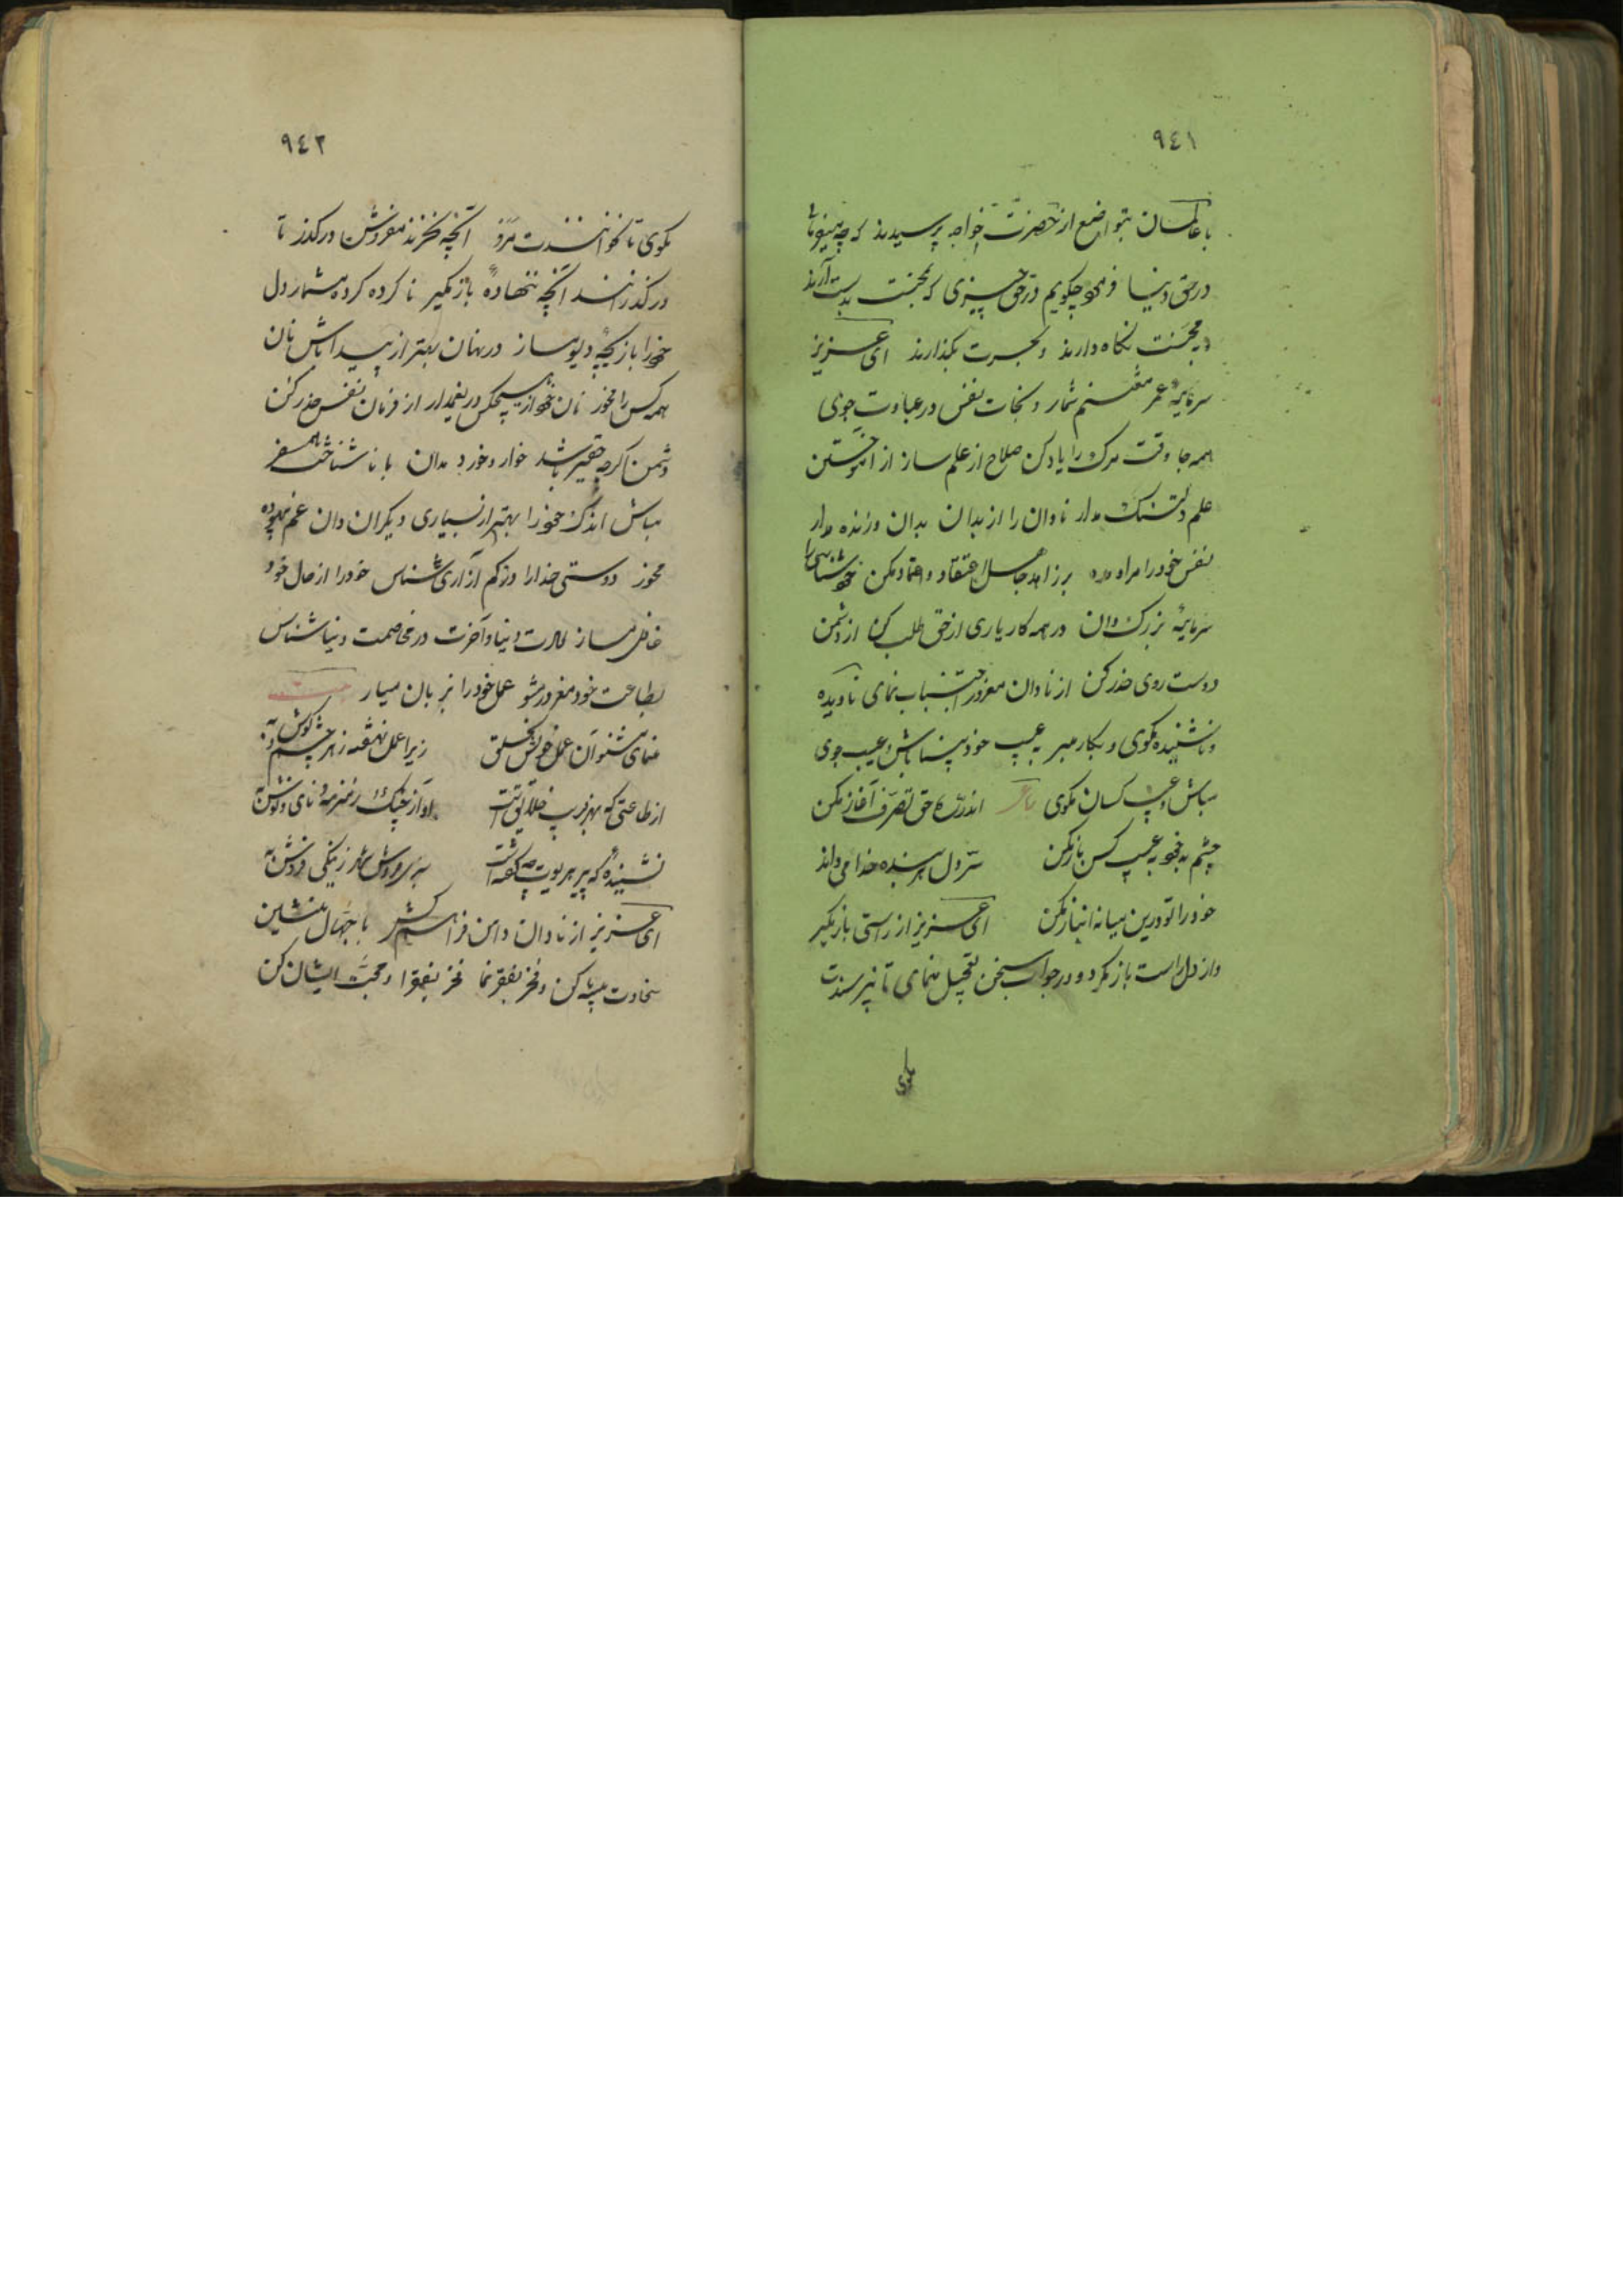 ٩٤١
با عالمان بتواضع از حضرت خواجه پرسیدند که چه میفرمائی
در حق دنیا فرمود چگویم در حق چیزی که بمحنت بدست آرند
و بمحنت نگاه دارند و بحسرت بگذارند ای عزیز
سرمایهٔ عمر مغتنم شمار و نجات نفس در عبادت جوی
همه جا وقت مرک را یاد کن صلاح از علم ساز از آموختن
علم دلتنک مدار نادان را از بدان بدان و زنده مدار
نفس خود را مراد مده بر زاهد جاهل اعتقاد و اعتماد مکن خودشناسی را
سرمایهٔ بزرک دان در همه کار یاری از حق طلب کن از دشمن
دوست روی حذر کن از نادان مغرور اجتناب نمای نادیده
و ناشنیده مگوی و بکار مبر به عیب خود بینا باش و عیب جوی
مباش و عیب کسان مگوی اندر ره حق تصرف آغاز مکن
چشم بد خود به عیب کس باز مکن سرّ دل هر بنده خدا می داند
خود را تو درین میانه انباز مکن ای عزیز از راستی باز مگیر
و از دل راست باز مگرد و در جواب سخن تعجیل منمای تا نپرسندت
مگوی
٩٤٢
مگوی تا نخوانندت مرو آنچه نخرند مفروش درگذر تا
درگذرانند آنچه ننهادهٔ باز مگیر ناکرده کرده مشمار دل
خود را بازیچهٔ دیو مساز در نهان بهتر از پیدا باش نان
همه کس را مخور نان خود از هیچکس دریغ مدار از فرمان نفس حذر کن
دشمن اگرچه حقیر باشد خوار و خورد مدان با ناشناخت همسفر
مباش اندک خود را بهتر از بسیاری دیگران دان غم بیهوده
مخور دوستی خدا را در کم آزاری شناس خود را از حال خود
غافل مساز دنیا و آخرت در مخاصمت دنیا شناس
بطاعت خود مغرور مشو عمل خود را بر زبان میار بیت
منمای مشنوان عمل خویش بخلق زیرا عمل نهفته ز هر چشم و گوش به
از طاعتی که بهر فریب خلایقست آواز چنک و زمزمه و نای و نوش به
نشنیدهٔ که پیر هریوت چه گفته است
ای عزیز از نادان دامن فراهم کش با جهّال منشین
سخاوت پیشه کن و فخر بفقر نما فخر بفقرا و محبّت ایشان کن